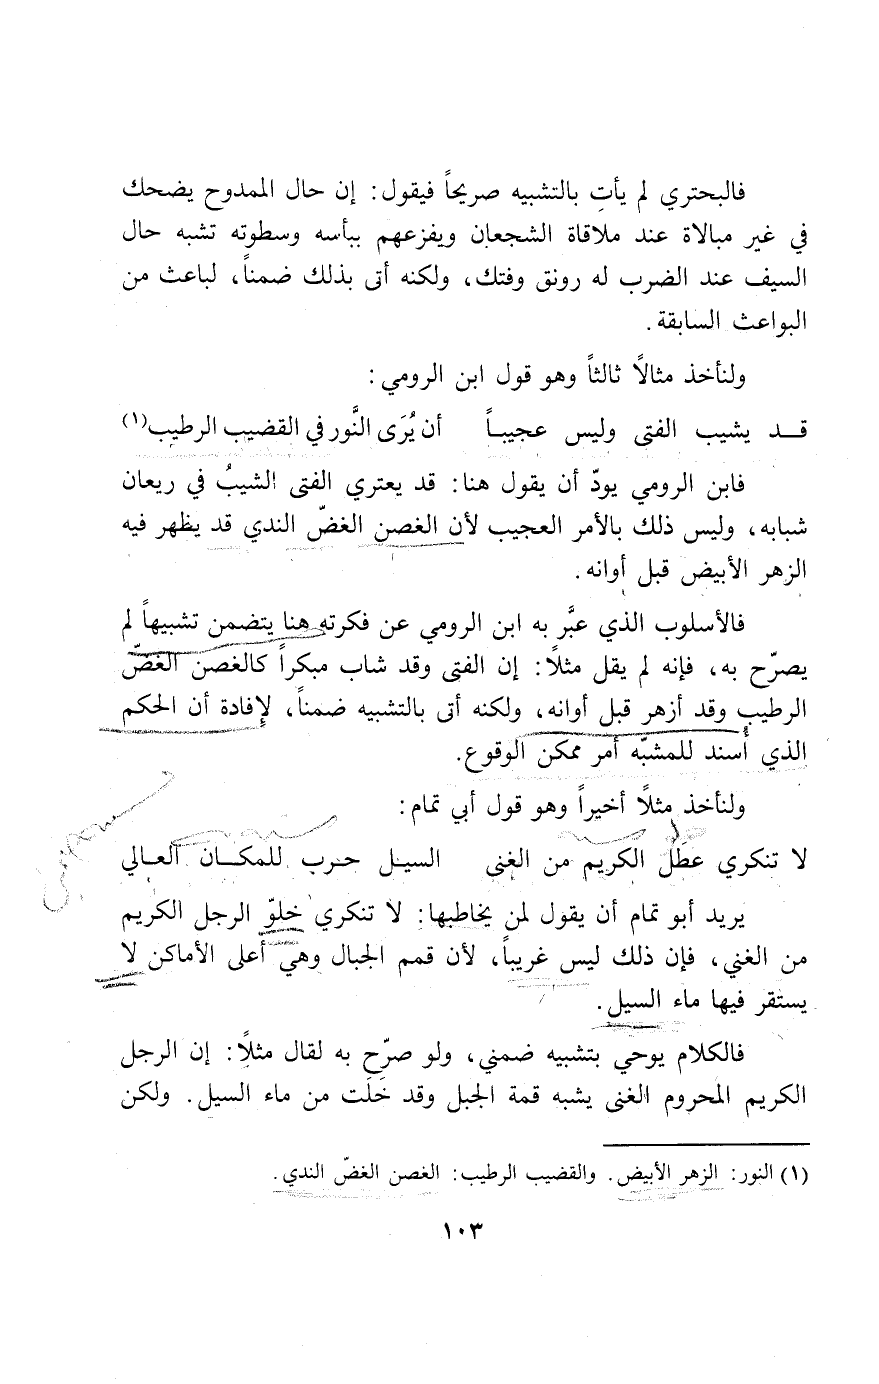 فالبحتري لم يأتِ بالتشبيه صريحاً فيقول: إن حال الممدوح يضحك
في غير مبالاة عند ملاقاة الشجعان ويفزعهم ببأسه وسطوته تشبه حال
السيف عند الضرب له رونق وفتك، ولكنه أتى بذلك ضمناً، لباعث من
البواعث السابقة.
ولنأخذ مثالاً ثالثاً وهو قول ابن الرومي:
قــد يشيب الفتى وليس عجيبــاً أن يُرَى النَّور في القضيب الرطيب(١)
فابن الرومي يودّ أن يقول هنا: قد يعتري الفتى الشيبُ في ريعان
شبابه، وليس ذلك بالأمر العجيب لأن الغصن الغضّ الندي قد يظهر فيه
الزهر الأبيض قبل أوانه.
فالأسلوب الذي عبَّر به ابن الرومي عن فكرته هنا يتضمن تشبيهاً لم
يصرّح به، فإنه لم يقل مثلاً: إن الفتى وقد شاب مبكراً كالغصن الغضّ
الرطيب وقد أزهر قبل أوانه، ولكنه أتى بالتشبيه ضمناً، لإفادة أن الحكم
الذي أُسند للمشبّه أمر ممكن الوقوع.
ولنأخذ مثلاً أخيراً وهو قول أبي تمام:
لا تنكري عطَلَ الكريم من الغنى السيـل حـرب للمكــان العـالي
يريد أبو تمام أن يقول لمن يخاطبها: لا تنكري خلوّ الرجل الكريم
من الغني، فإن ذلك ليس غريباً، لأن قمم الجبال وهي أعلى الأماكن لا
يستقر فيها ماء السيل.
فالكلام يوحي بتشبيه ضمني، ولو صرّح به لقال مثلاً: إن الرجل
الكريم المحروم الغنى يشبه قمة الجبل وقد خَلَت من ماء السيل. ولكن
(١) النور: الزهر الأبيض. والقضيب الرطيب: الغصن الغضّ الندي.
١٠٣